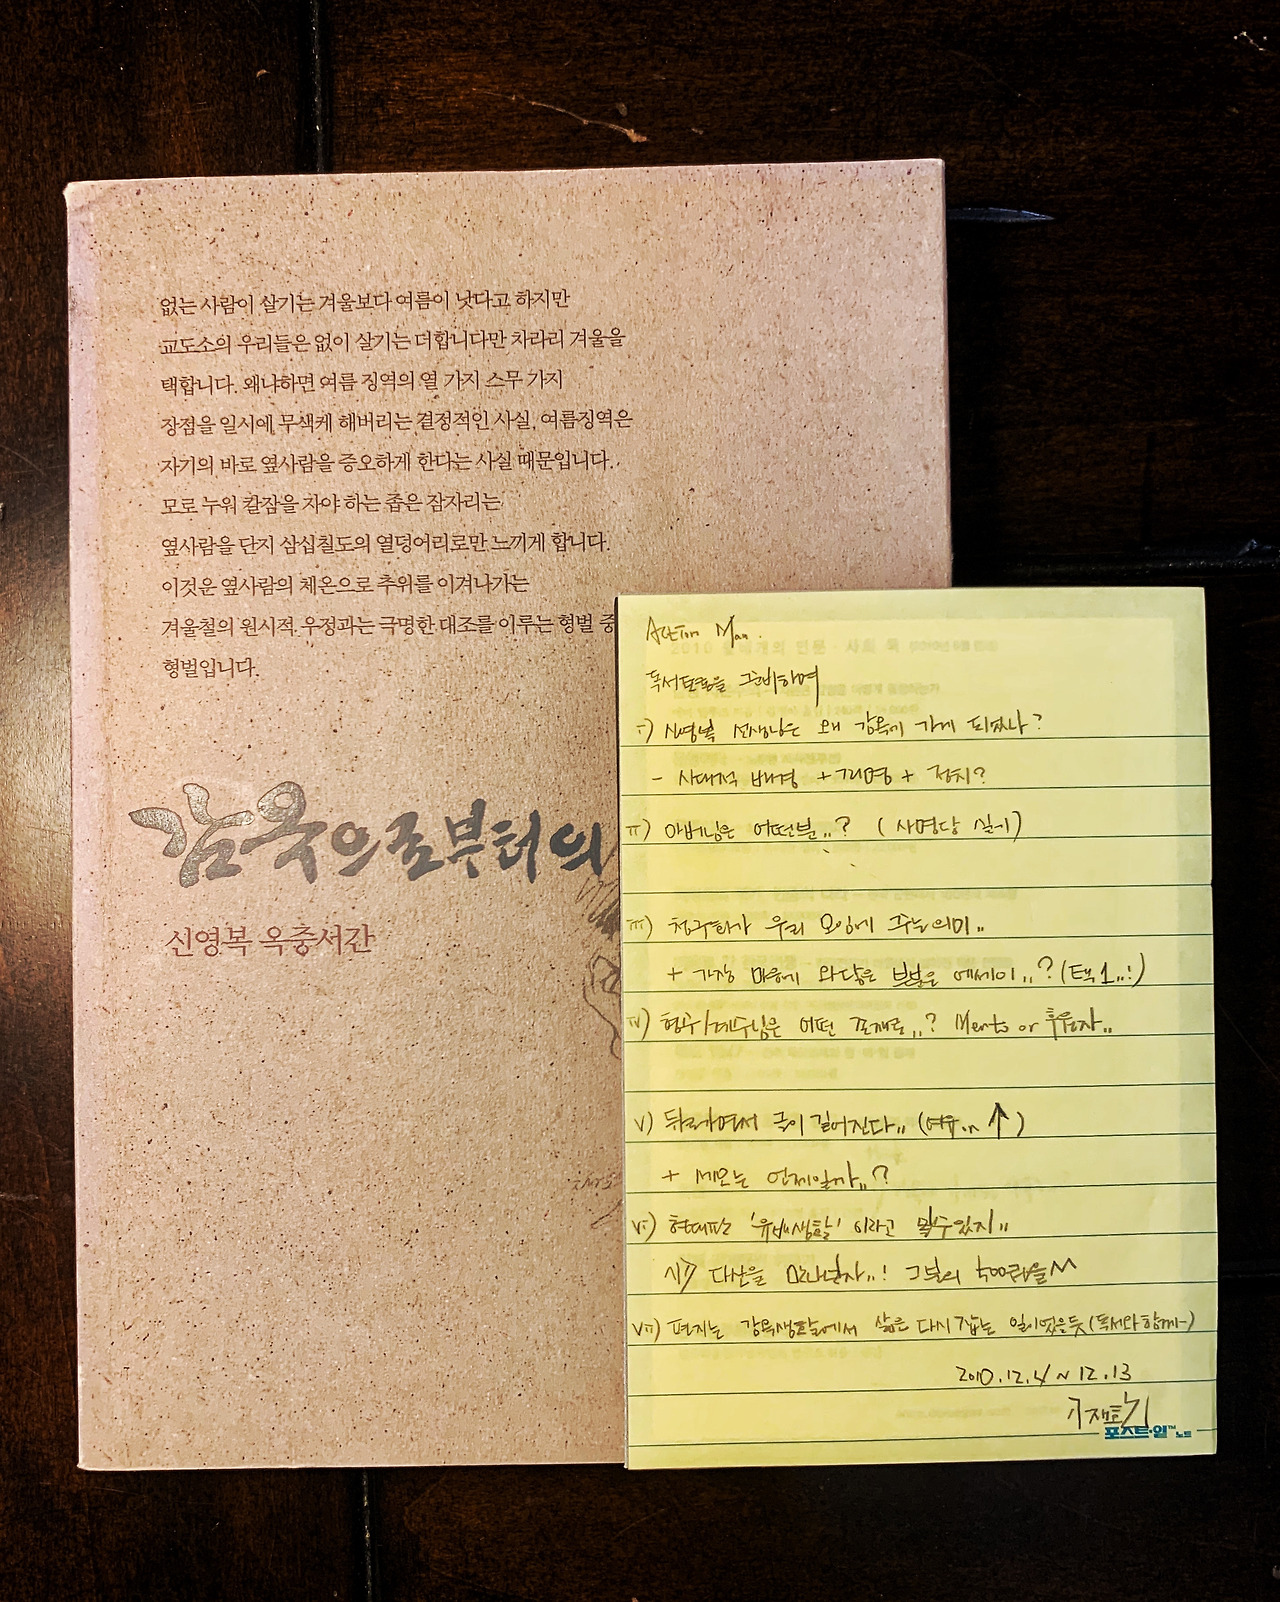 없는 사람이 살기는 겨울보다 여름이 낫다고 하지만
교도소의 우리들은 없이 살기는 더합니다만 차라리 겨울을
택합니다. 왜냐하면 여름 징역의 열 가지 스무 가지
장점을 일시에 무색케 해버리는 결정적인 사실, 여름징역은
자기의 바로 옆사람을 증오하게 한다는 사실 때문입니다.
모로 누워 칼잠을 자야 하는 좁은 잠자리는
옆사람을 단지 삼십칠도의 열덩어리로만 느끼게 합니다.
이것은 옆사람의 체온으로 추위를 이겨나가는
겨울철의 원시적 우정과는 극명한 대조를 이루는 형벌 중
형벌입니다.
감옥으로부터의
신영복 옥중서간
Action Man.
독서토론을 준비하며
i) 신영복 선생님은 왜 감옥에 가게 되었나?
- 시대적 배경 + 괴명 + 정치?
ii) 아버님은 어떤분..? (사명당 실기)
iii) 청구회가 우리 모임에 주는의미..
+ 가장 마음에 와닿은 부분은 에세이..? (택1..!)
iv) 형수/계수님은 어떤 존재로..? Mento or 후원자..
v) 뒤로가면서 글이 길어진다.. (여유.. ↑)
+ 메모는 언제일까..?
vi) 현대판 '유배생활' 이라고 볼수있지..
시)) 다산을 만나보자..! 그날의
vii) 편지는 감옥생활에서 삶은 다시 잡는 일이었을듯 (독서와 함께~)
2010.12.4 ~ 12.13
포스트-일™ 노트